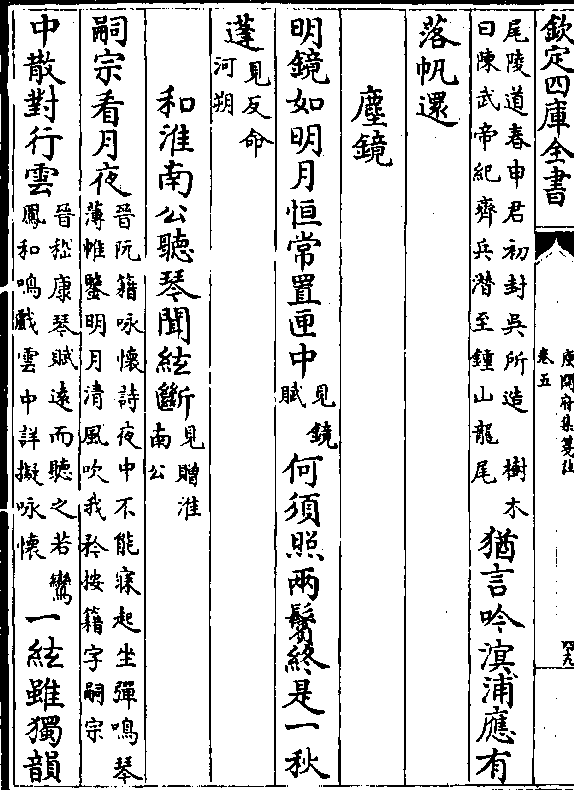 欽定四庫全書
庾開府集箋注
卷五
尾陵道春申君初封吳所造 樹木
曰陳武帝紀齊兵潛至鍾山龍尾
猶言吟溟浦應有
落帆還
塵鏡
明鏡如明月恒常置匣中
見鏡
賦
何須照兩鬢終是一秋
蓬
見反命
河朔
和淮南公聽琴聞絃斷
見贈淮
南公
嗣宗看月夜
晉阮籍咏懷詩夜中不能寐起坐彈鳴琴
薄帷鑒明月清風吹我衿按籍字嗣宗
中散對行雲
晉嵇康琴賦遠而聽之若鸞
鳳和鳴戲雲中詳擬咏懷
一絃雖獨韻